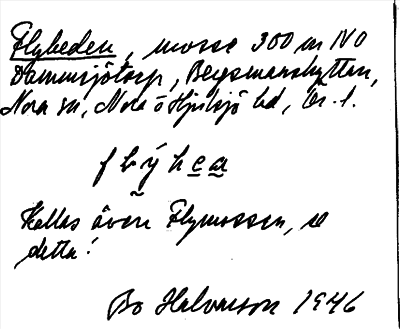 Flybeden, mosse 300 m NO
Dammsjötorp, Bergsmanshyttan,
Nora sn, Nora o Hjulsjö hd, Ör. l.
Kallas även Flymossen, se
detta!
Bo Halvarson 1946